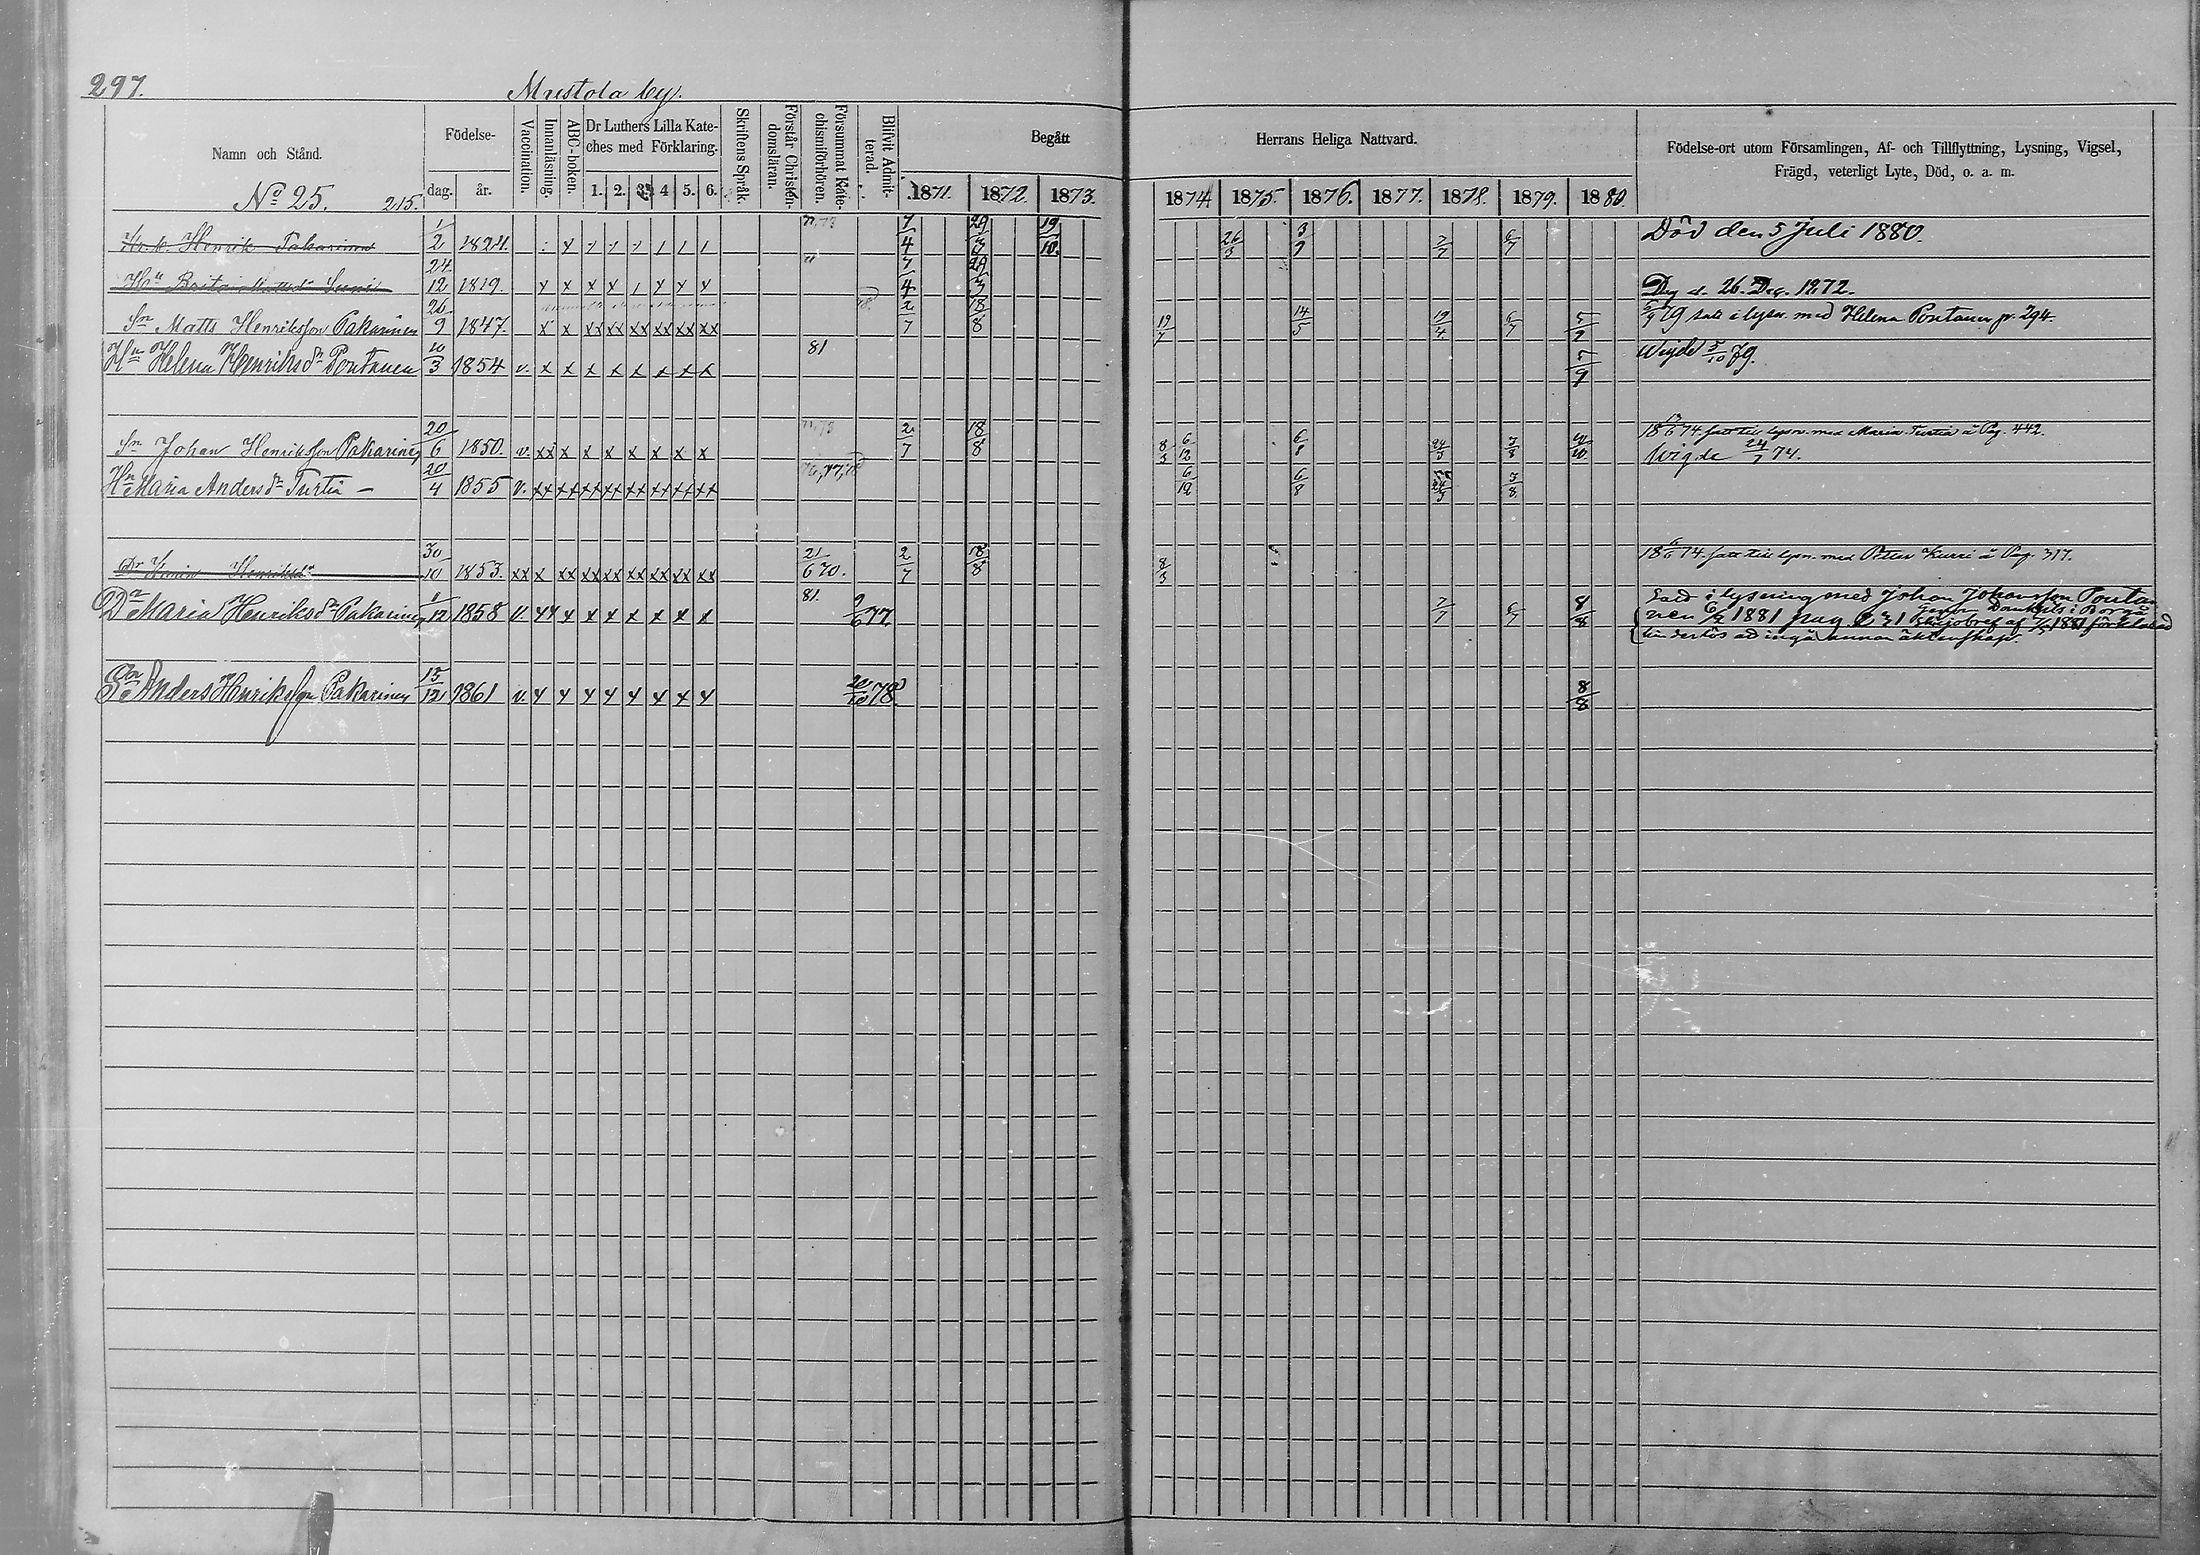 297.
Mustola by.
Namn och Stånd.
Födelse-
dag.
år.
Vaccination.
Innanläsning.
ABC-boken.
Dr Luthers Lilla Kate-
ches med Förklaring.
1. 2. 3 4 5. 6.
Skriftens Språk.
Förstår Christen-
domsläran.
Försummat Kate-
chismiförhören.
Blifvit Admit-
terad.
Begått
Herrans Heliga Nattvard.
1871. 1872. 1873.
1874 1875. 1876. 1877. 1878. 1879. 1880.
Födelse-ort utom Församlingen, Af- och Tillflyttning, Lysning, Vigsel,
Frägd, veterligt Lyte, Död, o. a. m.
No 25. 215.
Henrik Pakarinen 1/2 1824. 7/4 29/3 19/10. 26/3 3/9 7/7 6/7 Död den 5 Juli 1880.
Hu Brita Mattsdr Suni 24/12 1819. 7/4 29/3 Dog d. 26. Dec. 1872.
Sn Matts Henriksson Pakarinen 26/9 1847. x x xx xx xx xx xx xx 2/7 18/8 19/7 14/5 19/4 6/7 5/9 med Helena Pontanen p. 294.
Hu Helena Henriksdr Pontanen 10/3 1854 v. x x x x x x x x 81 5/9 Wigde 5/10 79.
Sn Johan Henriksson Pakarinen 20/6 1850. v. xx x x x x x x x 2/7 18/8 8/3 6/12 6/8 24/3 3/8 18 74 satt till lysn. med Maria Turtia å Pag. 442.
Wigde 24/7 74.
Hn Maria Andersdr Turtia – 20/4 1855 v. xx xx xx xx xx xx xx xx 6/12 6/8 24/3 3/8
Dr Henriksdr 30/10 1853. xx x xx xx xx xx xx xx xx 21/6 70. 2/7 18/8 8/3 18 74. satt till lysn. med Peter Kurri å Pag. 317.
Dr Maria Henriksdr Pakarinen 1858 v. 81. 9/6 77. 7/7 6/7 8/8 i lysning med Johan Johansson Ponta-
nen 1881 pag Domkapits i Borgå
skiljobref af 1881 förklarad
hinderlös att ingå annan äktenskap.
Son Anders Henriksson Pakarinen 15/12 1861 v. 20/10 78. 8/8